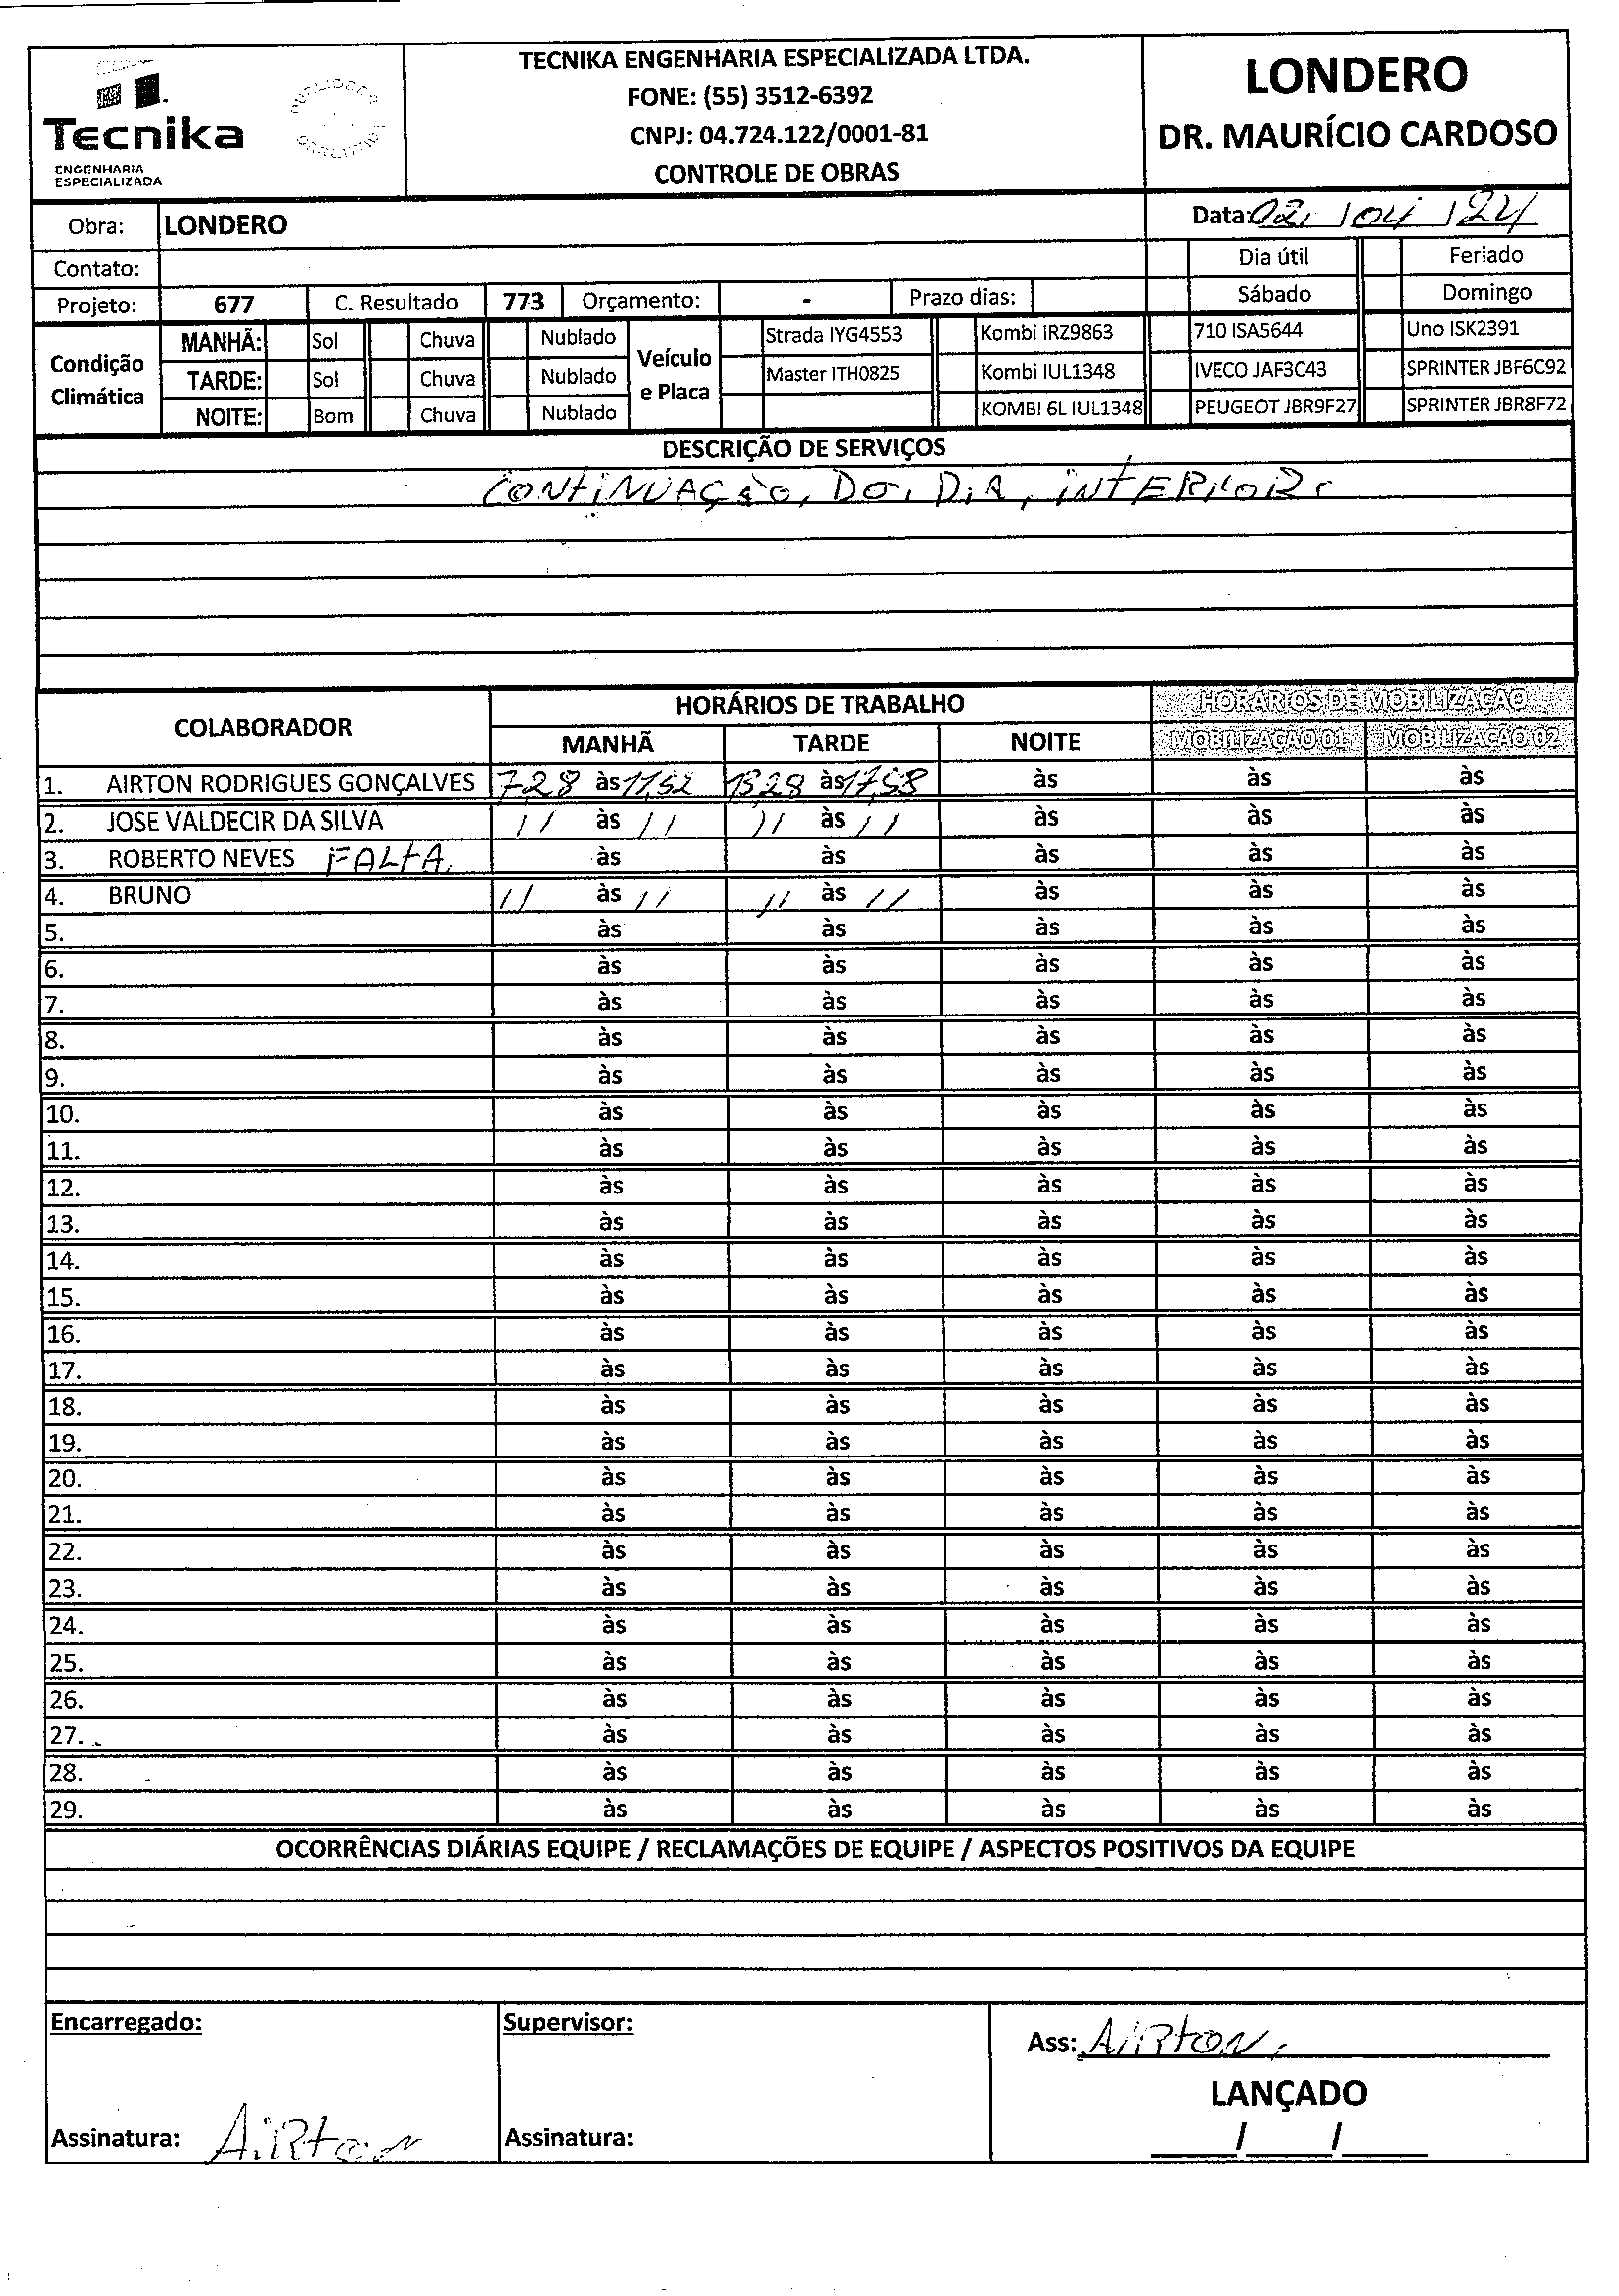 Tecnika
ENGENHARIA
ESPECIALIZADA
TECNIKA ENGENHARIA ESPECIALIZADA LTDA.
FONE: (55) 3512-6392
CNPJ: 04.724.122/0001-81
CONTROLE DE OBRAS
LONDERO
DR. MAURÍCIO CARDOSO
Obra: LONDERO
Data: 02 / 04 / 24
Contato:
Dia útil Feriado
Projeto: 677 C. Resultado 773 Orçamento: - Prazo dias: Sábado Domingo
Condição Climática
MANHÃ: Sol Chuva Nublado
TARDE: Sol Chuva Nublado
NOITE: Bom Chuva Nublado
Veículo e Placa
Strada IYG4553 Kombi IRZ9863 710 ISA5644 Uno ISK2391
Master ITH0825 Kombi IUL1348 IVECO JAF3C43 SPRINTER JBF6C92
KOMBI 6L IUL1348 PEUGEOT JBR9F27 SPRINTER JBR8F72
DESCRIÇÃO DE SERVIÇOS
CONTINUAÇÃO, DO, DIA, INTERIOR.
COLABORADOR HORÁRIOS DE TRABALHO HORÁRIOS DE MOBILIZAÇÃO
MANHÃ TARDE NOITE MOBILIZAÇÃO 01 MOBILIZAÇÃO 02
1. AIRTON RODRIGUES GONÇALVES 7,28 às 11,52 13,28 às 17,58 às às às
2. JOSE VALDECIR DA SILVA // às // // às // às às às
3. ROBERTO NEVES FALTA. às às às às às
4. BRUNO // às // // às // às às às
5. às às às às às
6. às às às às às
7. às às às às às
8. às às às às às
9. às às às às às
10. às às às às às
11. às às às às às
12. às às às às às
13. às às às às às
14. às às às às às
15. às às às às às
16. às às às às às
17. às às às às às
18. às às às às às
19. às às às às às
20. às às às às às
21. às às às às às
22. às às às às às
23. às às às às às
24. às às às às às
25. às às às às às
26. às às às às às
27. às às às às às
28. às às às às às
29. às às às às às
OCORRÊNCIAS DIÁRIAS EQUIPE / RECLAMAÇÕES DE EQUIPE / ASPECTOS POSITIVOS DA EQUIPE
Encarregado:
Supervisor:
Ass: AIRTON,
LANÇADO
__/__/__
Assinatura: AIRTON
Assinatura: